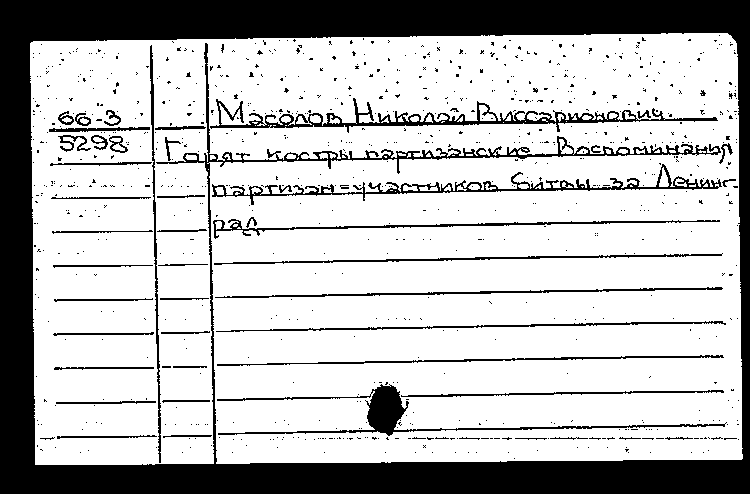 66-3 Масолов, Николай Виссарионович.
5298 Горят костры партизанские. Воспоминания
партизан-участников битвы за Ленинг-
рад.